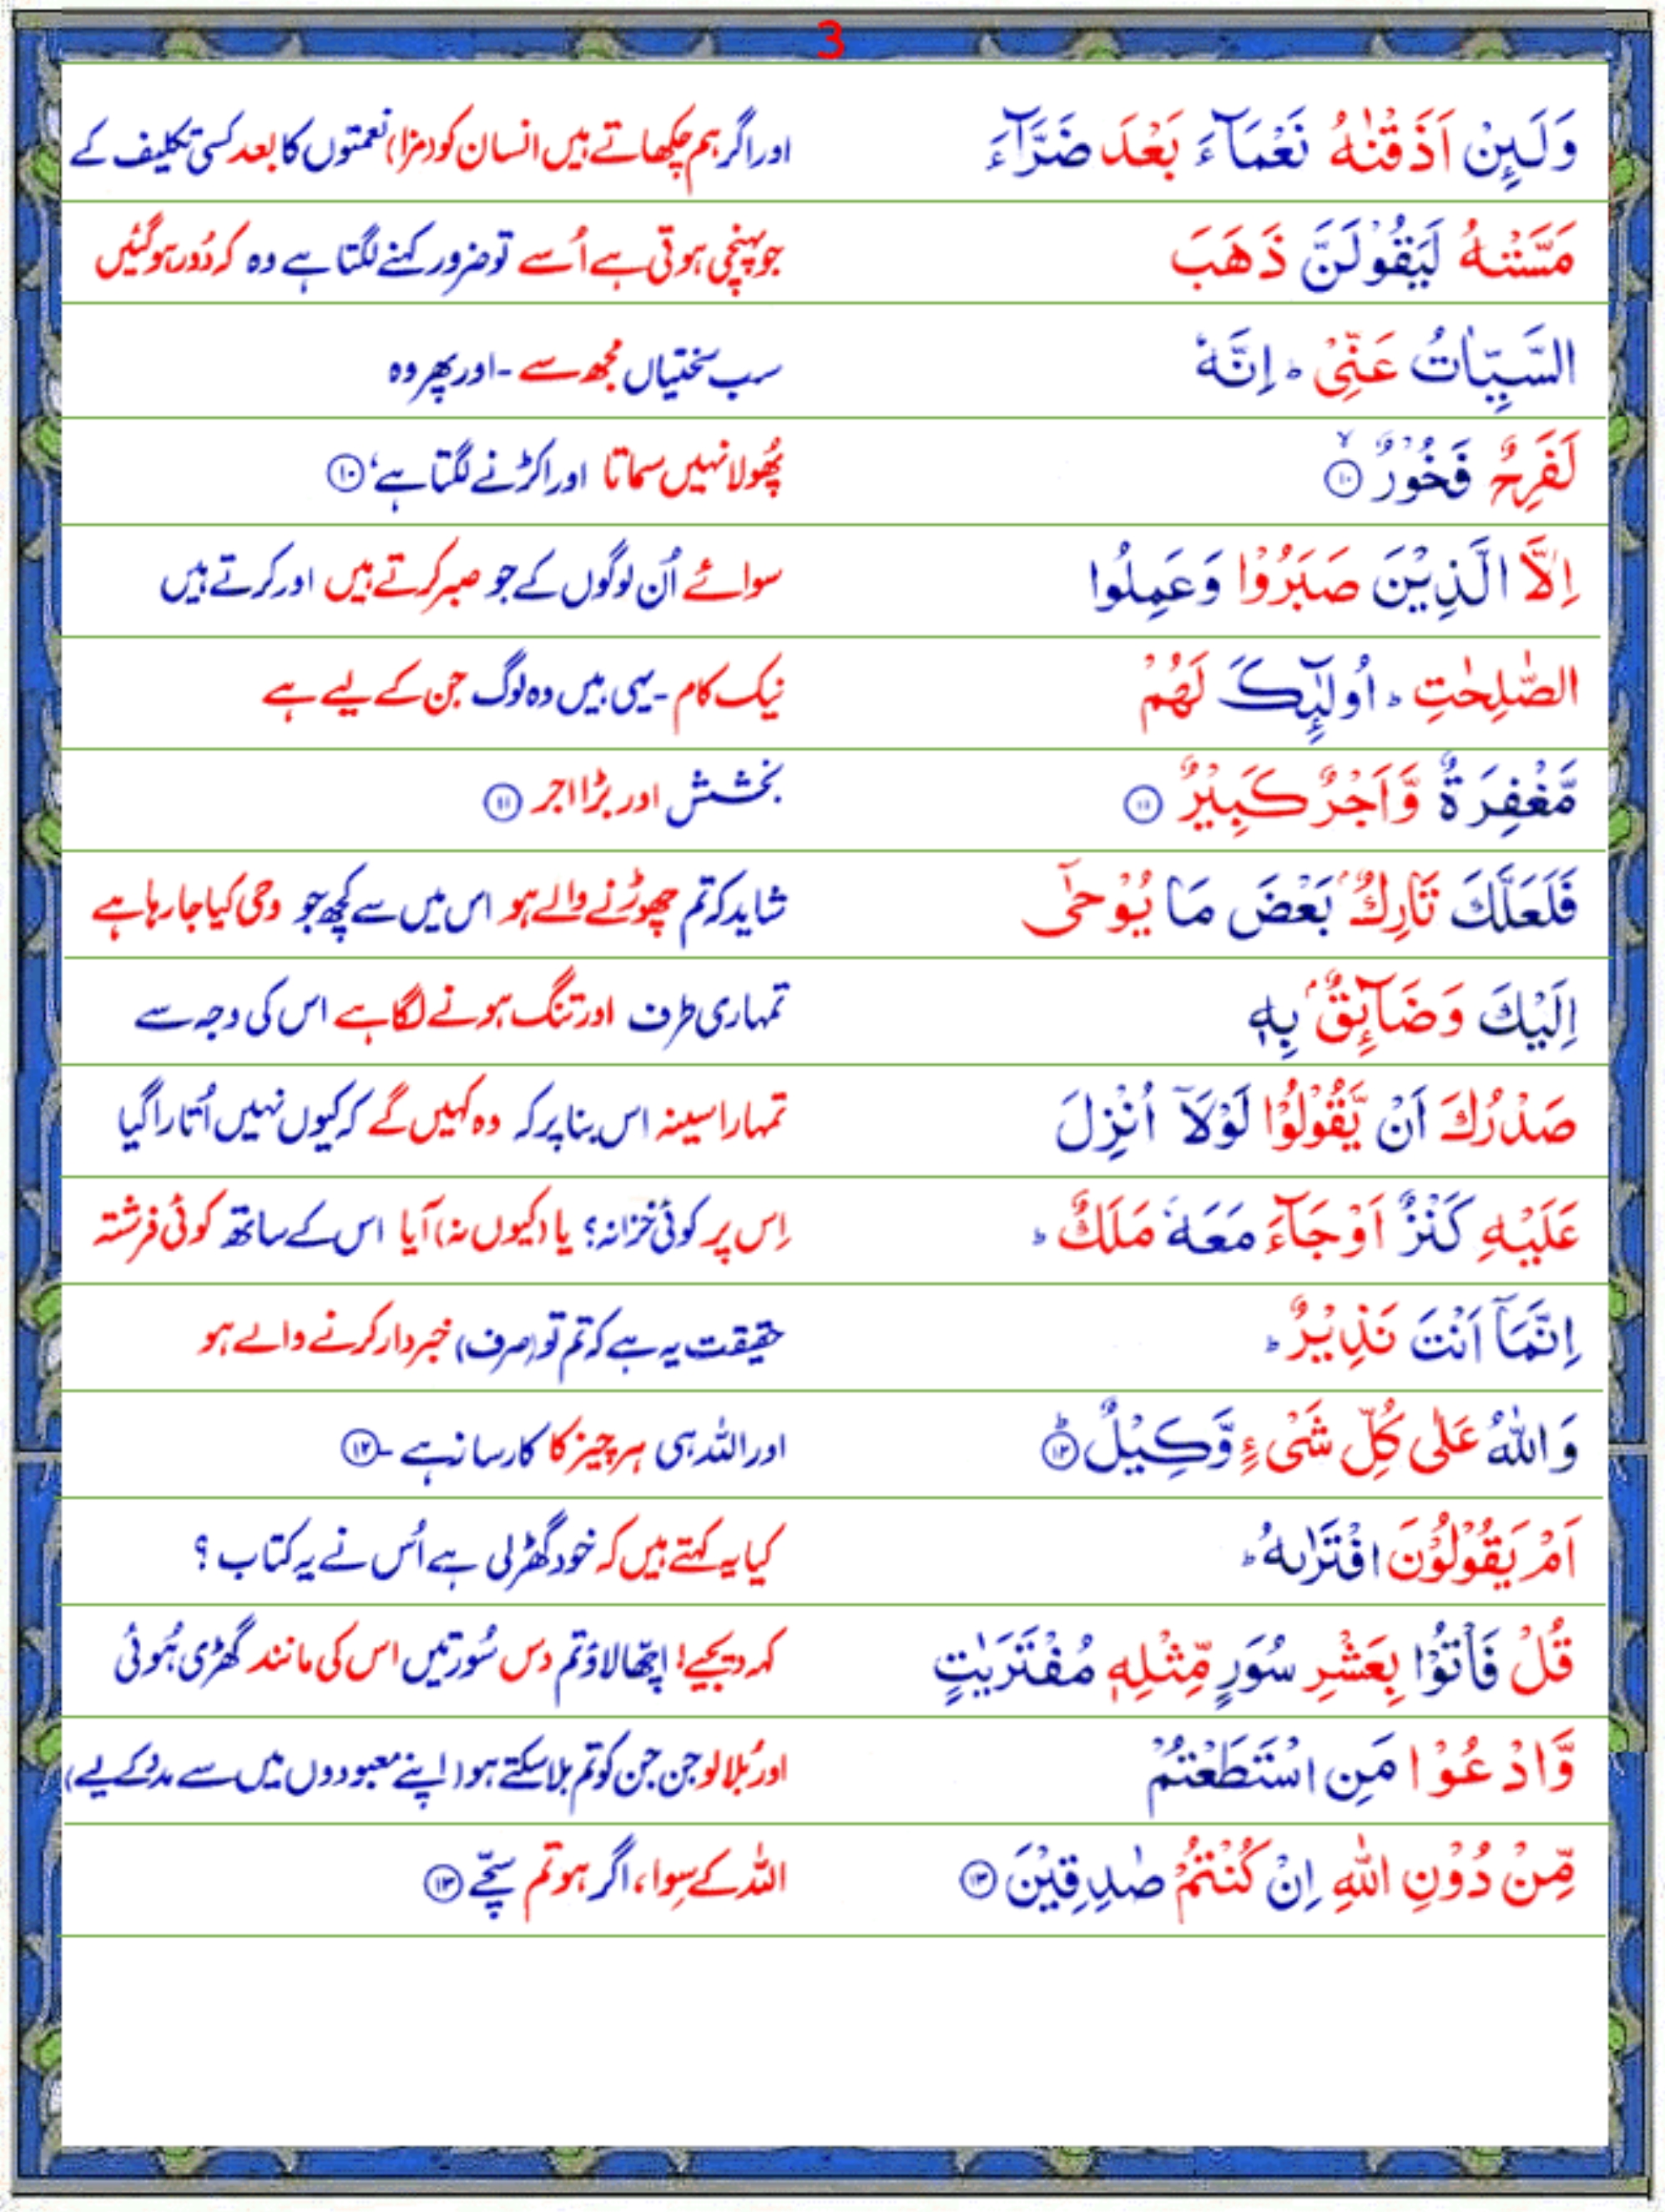 3
وَلَىِٕنْ اَذَقْنٰهُ نَعْمَآءَ بَعْدَ ضَرَّآءَ اور اگر ہم چکھاتے ہیں انسان کو (مزا) نعمتوں کا بعد کسی تکلیف کے
مَسَّتْهُ لَيَقُوْلَنَّ ذَهَبَ جو پہنچی ہوتی ہے اُسے تو ضرور کہنے لگتا ہے وہ کہ دُور ہو گئیں
السَّيِّاٰتُ عَنِّيْ ؕ اِنَّهٗ سب سختیاں مُجھ سے - اور پھر وہ
لَفَرِحٌ فَخُوْرٌ ۙ ۝۱۰ پُھولا نہیں سماتا اور اکڑنے لگتا ہے، ۝۱۰
اِلَّا الَّذِيْنَ صَبَرُوْا وَعَمِلُوا سوائے اُن لوگوں کے جو صبر کرتے ہیں اور کرتے ہیں
الصّٰلِحٰتِ ؕ اُولٰٓىِٕكَ لَهُمْ نیک کام - یہی ہیں وہ لوگ جن کے لیے ہے
مَّغْفِرَةٌ وَّاَجْرٌ كَبِيْرٌ ۝۱۱ بخشش اور بڑا اجر ۝۱۱
فَلَعَلَّكَ تَارِكٌۢ بَعْضَ مَا يُوْحٰٓى شاید کہ تم چھوڑنے والے ہو اس میں سے کچھ جو وحی کیا جا رہا ہے
اِلَيْكَ وَضَآىِٕقٌۢ بِهٖ تمہاری طرف اور تنگ ہونے لگا ہے اس کی وجہ سے
صَدْرُكَ اَنْ يَّقُوْلُوْا لَوْلَاۤ اُنْزِلَ تمہارا سینہ اس بنا پر کہ وہ کہیں گے کہ کیوں نہیں اُتارا گیا
عَلَيْهِ كَنْزٌ اَوْ جَآءَ مَعَهٗ مَلَكٌ ؕ اِس پر کوئی خزانہ؟ یا (کیوں نہ) آیا اس کے ساتھ کوئی فرشتہ
اِنَّمَاۤ اَنْتَ نَذِيْرٌ ؕ حقیقت یہ ہے کہ تم تو (صرف) خبردار کرنے والے ہو
وَاللّٰهُ عَلٰى كُلِّ شَيْءٍ وَّكِيْلٌ ؕ ۝۱۲ اور اللہ ہی ہر چیز کا کارساز ہے - ۝۱۲
اَمْ يَقُوْلُوْنَ افْتَرٰىهُ ؕ کیا یہ کہتے ہیں کہ خود گھڑ لی ہے اُس نے یہ کتاب ؟
قُلْ فَاْتُوْا بِعَشْرِ سُوَرٍ مِّثْلِهٖ مُفْتَرَيٰتٍ کہہ دیجیے! اچّھا لاؤ تم دس سُورتیں اس کی مانند گھڑی ہُوئی
وَّادْعُوْا مَنِ اسْتَطَعْتُمْ اور بُلا لو جن جن کو تم بلا سکتے ہو (اپنے معبودوں میں سے مدد کے لیے)
مِّنْ دُوْنِ اللّٰهِ اِنْ كُنْتُمْ صٰدِقِيْنَ ۝۱۳ اللہ کے سِوا، اگر ہو تم سچّے ۝۱۳